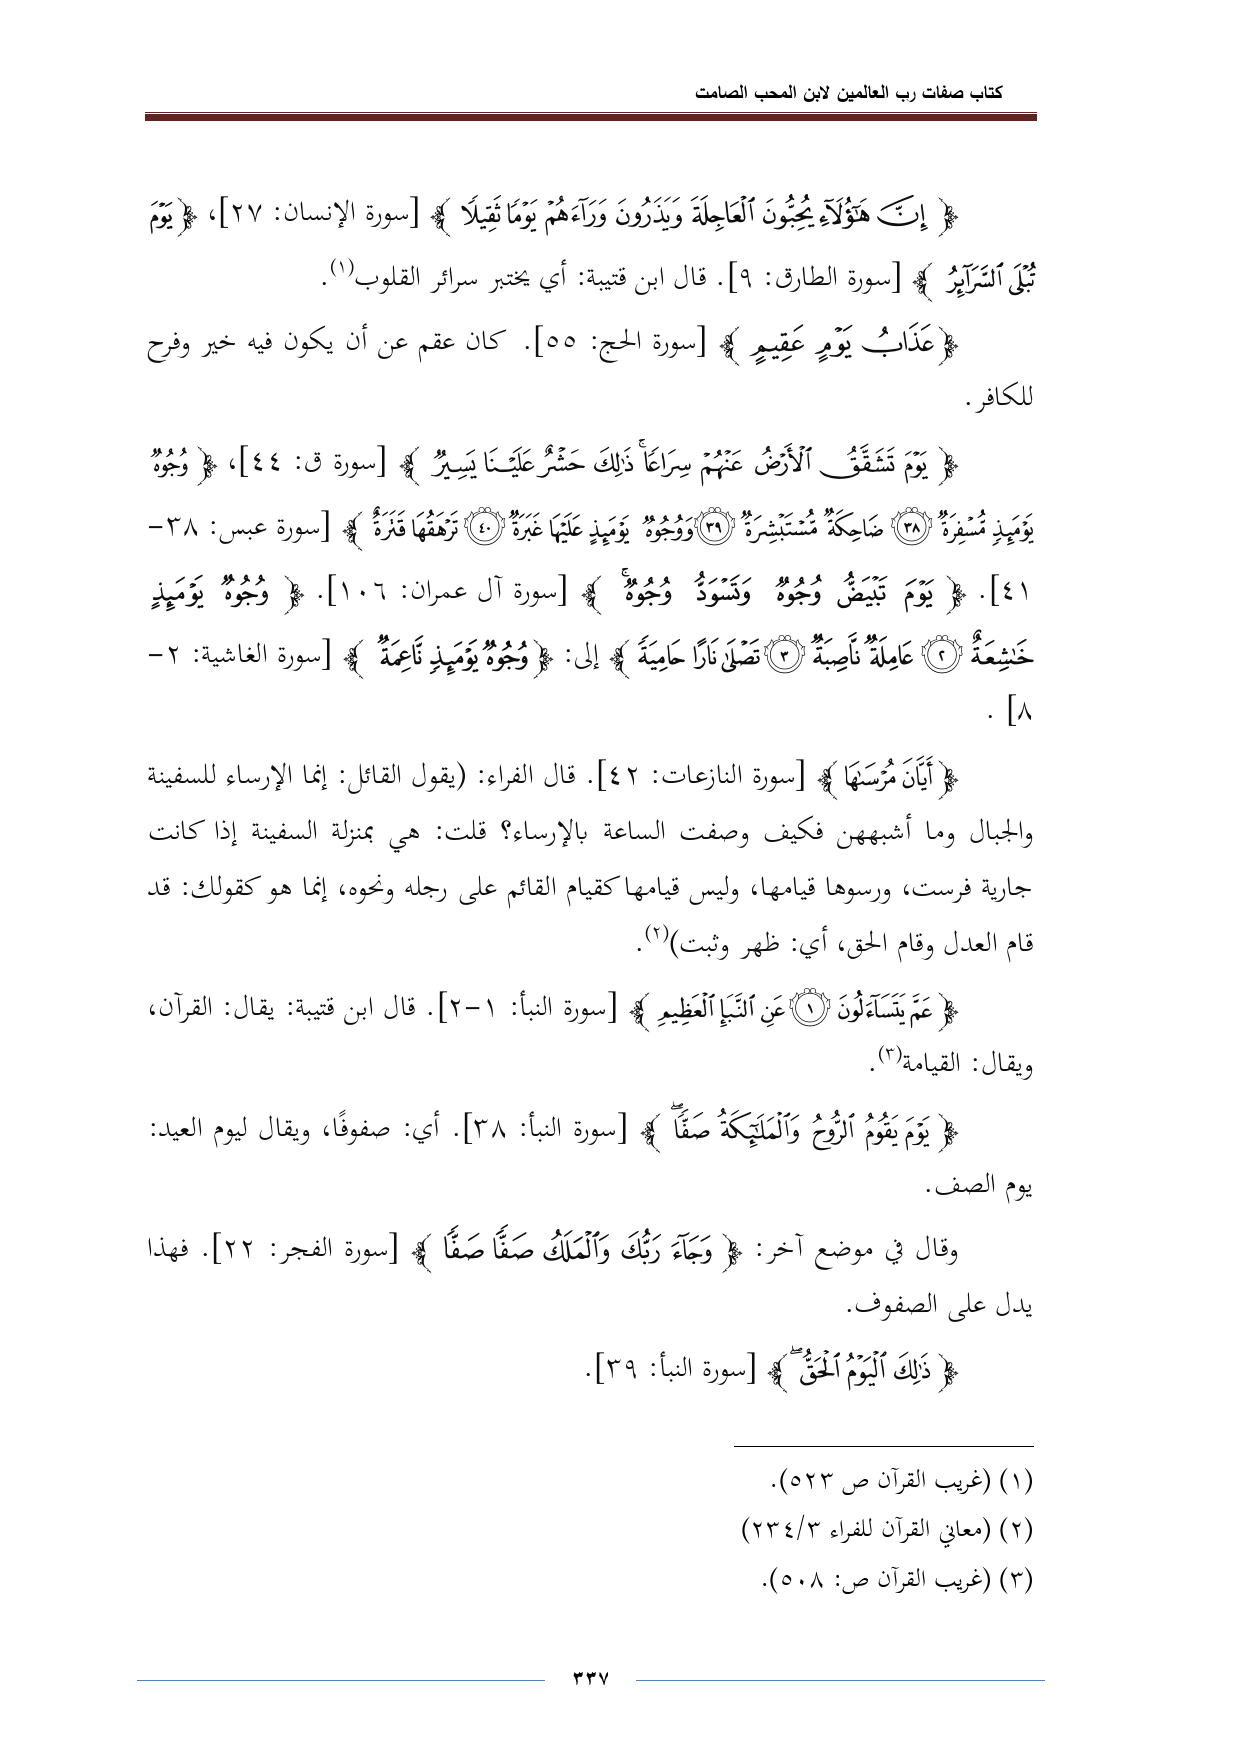 كتاب صفات رب العالمين لابن المحب الصامت
﴿ إِنَّ هَٰٓؤُلَآءِ يُحِبُّونَ ٱلْعَاجِلَةَ وَيَذَرُونَ وَرَآءَهُمْ يَوْمًا ثَقِيلًا ﴾ [سورة الإنسان: ٢٧]، ﴿ يَوْمَ
تُبْلَى ٱلسَّرَآئِرُ ﴾ [سورة الطارق: ٩]. قال ابن قتيبة: أي يختبر سرائر القلوب(١).
﴿ عَذَابُ يَوْمٍ عَقِيمٍ ﴾ [سورة الحج: ٥٥]. كان عقم عن أن يكون فيه خير وفرح
للكافر.
﴿ يَوْمَ تَشَقَّقُ ٱلْأَرْضُ عَنْهُمْ سِرَاعًا ۚ ذَٰلِكَ حَشْرٌ عَلَيْنَا يَسِيرٌ ﴾ [سورة ق: ٤٤]، ﴿ وُجُوهٌ
يَوْمَئِذٍ مُّسْفِرَةٌ ٣٨ ضَاحِكَةٌ مُّسْتَبْشِرَةٌ ٣٩ وَوُجُوهٌ يَوْمَئِذٍ عَلَيْهَا غَبَرَةٌ ٤٠ تَرْهَقُهَا قَتَرَةٌ ﴾ [سورة عبس: ٣٨-
٤١]. ﴿ يَوْمَ تَبْيَضُّ وُجُوهٌ وَتَسْوَدُّ وُجُوهٌ ۚ ﴾ [سورة آل عمران: ١٠٦]. ﴿ وُجُوهٌ يَوْمَئِذٍ
خَٰشِعَةٌ ٢ عَامِلَةٌ نَّاصِبَةٌ ٣ تَصْلَىٰ نَارًا حَامِيَةً ﴾ إلى: ﴿ وُجُوهٌ يَوْمَئِذٍ نَّاعِمَةٌ ﴾ [سورة الغاشية: ٢-
٨] .
﴿ أَيَّانَ مُرْسَىٰهَا ﴾ [سورة النازعات: ٤٢]. قال الفراء: (يقول القائل: إنما الإرساء للسفينة
والجبال وما أشبههن فكيف وصفت الساعة بالإرساء؟ قلت: هي بمنزلة السفينة إذا كانت
جارية فرست، ورسوها قيامها، وليس قيامها كقيام القائم على رجله ونحوه، إنما هو كقولك: قد
قام العدل وقام الحق، أي: ظهر وثبت)(٢).
﴿ عَمَّ يَتَسَآءَلُونَ ١ عَنِ ٱلنَّبَإِ ٱلْعَظِيمِ ﴾ [سورة النبأ: ١-٢]. قال ابن قتيبة: يقال: القرآن،
ويقال: القيامة(٣).
﴿ يَوْمَ يَقُومُ ٱلرُّوحُ وَٱلْمَلَٰٓئِكَةُ صَفًّا ۖ ﴾ [سورة النبأ: ٣٨]. أي: صفوفًا، ويقال ليوم العيد:
يوم الصف.
وقال في موضع آخر: ﴿ وَجَآءَ رَبُّكَ وَٱلْمَلَكُ صَفًّا صَفًّا ﴾ [سورة الفجر: ٢٢]. فهذا
يدل على الصفوف.
﴿ ذَٰلِكَ ٱلْيَوْمُ ٱلْحَقُّ ۖ ﴾ [سورة النبأ: ٣٩].
(١) (غريب القرآن ص ٥٢٣).
(٢) (معاني القرآن للفراء ٢٣٤/٣)
(٣) (غريب القرآن ص: ٥٠٨).
٣٣٧